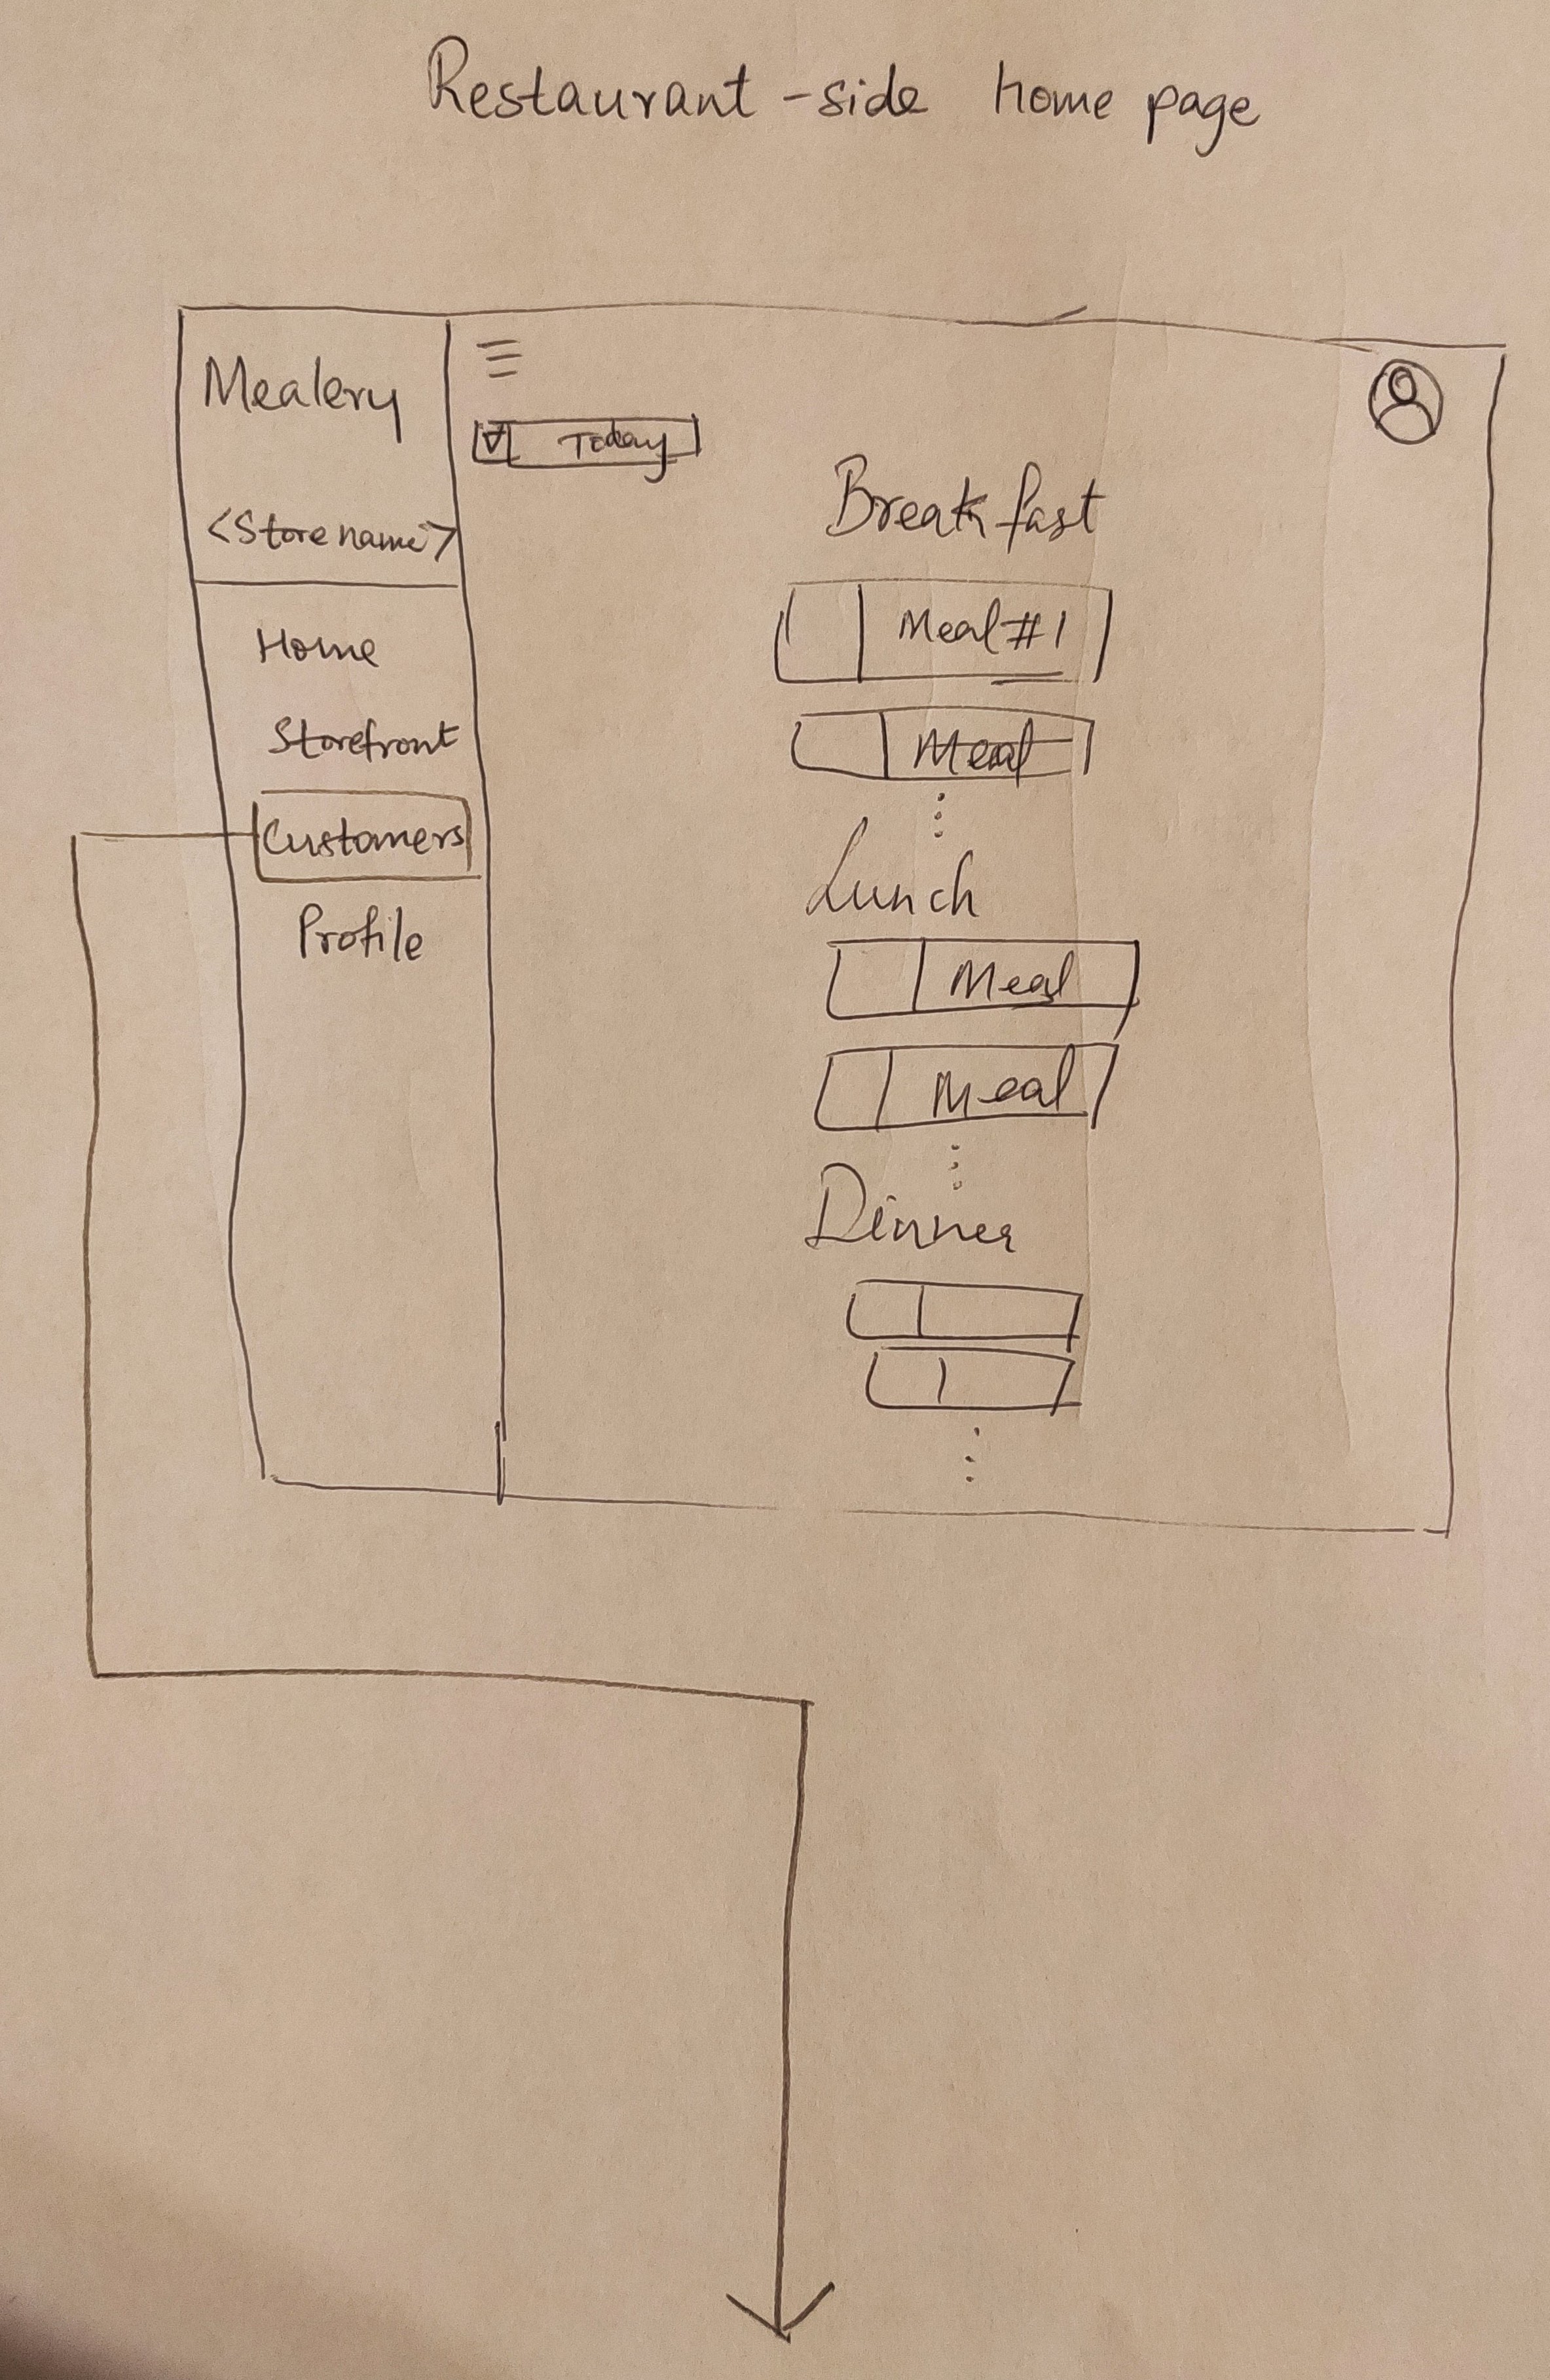 Restaurant-side home page
Mealery
<Store name>
Home
Storefront
Customers
Profile
Today
Breakfast
Meal #1
Meal
Lunch
Meal
Meal
Dinner